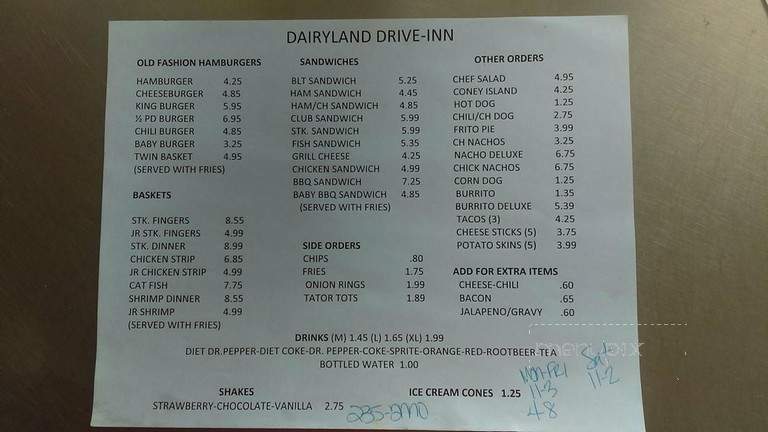 DAIRYLAND DRIVE-INN
OLD FASHION HAMBURGERS
HAMBURGER 4.25
CHEESEBURGER 4.85
KING BURGER 5.95
½ PD BURGER 6.95
CHILI BURGER 4.85
BABY BURGER 3.25
TWIN BASKET 4.95
(SERVED WITH FRIES)
BASKETS
STK. FINGERS 8.55
JR STK. FINGERS 4.99
STK. DINNER 8.99
CHICKEN STRIP 6.85
JR CHICKEN STRIP 4.99
CAT FISH 7.75
SHRIMP DINNER 8.55
JR SHRIMP 4.99
(SERVED WITH FRIES)
SANDWICHES
BLT SANDWICH 5.25
HAM SANDWICH 4.45
HAM/CH SANDWICH 4.85
CLUB SANDWICH 5.99
STK. SANDWICH 5.99
FISH SANDWICH 5.35
GRILL CHEESE 4.25
CHICKEN SANDWICH 4.99
BBQ SANDWICH 7.25
BABY BBQ SANDWICH 4.85
(SERVED WITH FRIES)
SIDE ORDERS
CHIPS .80
FRIES 1.75
ONION RINGS 1.99
TATOR TOTS 1.89
OTHER ORDERS
CHEF SALAD 4.95
CONEY ISLAND 4.25
HOT DOG 1.25
CHILI/CH DOG 2.75
FRITO PIE 3.99
CH NACHOS 3.25
NACHO DELUXE 6.75
CHICK NACHOS 6.75
CORN DOG 1.25
BURRITO 1.35
BURRITO DELUXE 5.39
TACOS (3) 4.25
CHEESE STICKS (5) 3.75
POTATO SKINS (5) 3.99
ADD FOR EXTRA ITEMS
CHEESE-CHILI .60
BACON .65
JALAPENO/GRAVY .60
DRINKS (M) 1.45 (L) 1.65 (XL) 1.99
DIET DR.PEPPER-DIET COKE-DR. PEPPER-COKE-SPRITE-ORANGE-RED-ROOTBEER-TEA
BOTTLED WATER 1.00
SHAKES
STRAWBERRY-CHOCOLATE-VANILLA 2.75
ICE CREAM CONES 1.25
235-2770
MON-FRI
11-3
4-8
Sat
11-2
menupix